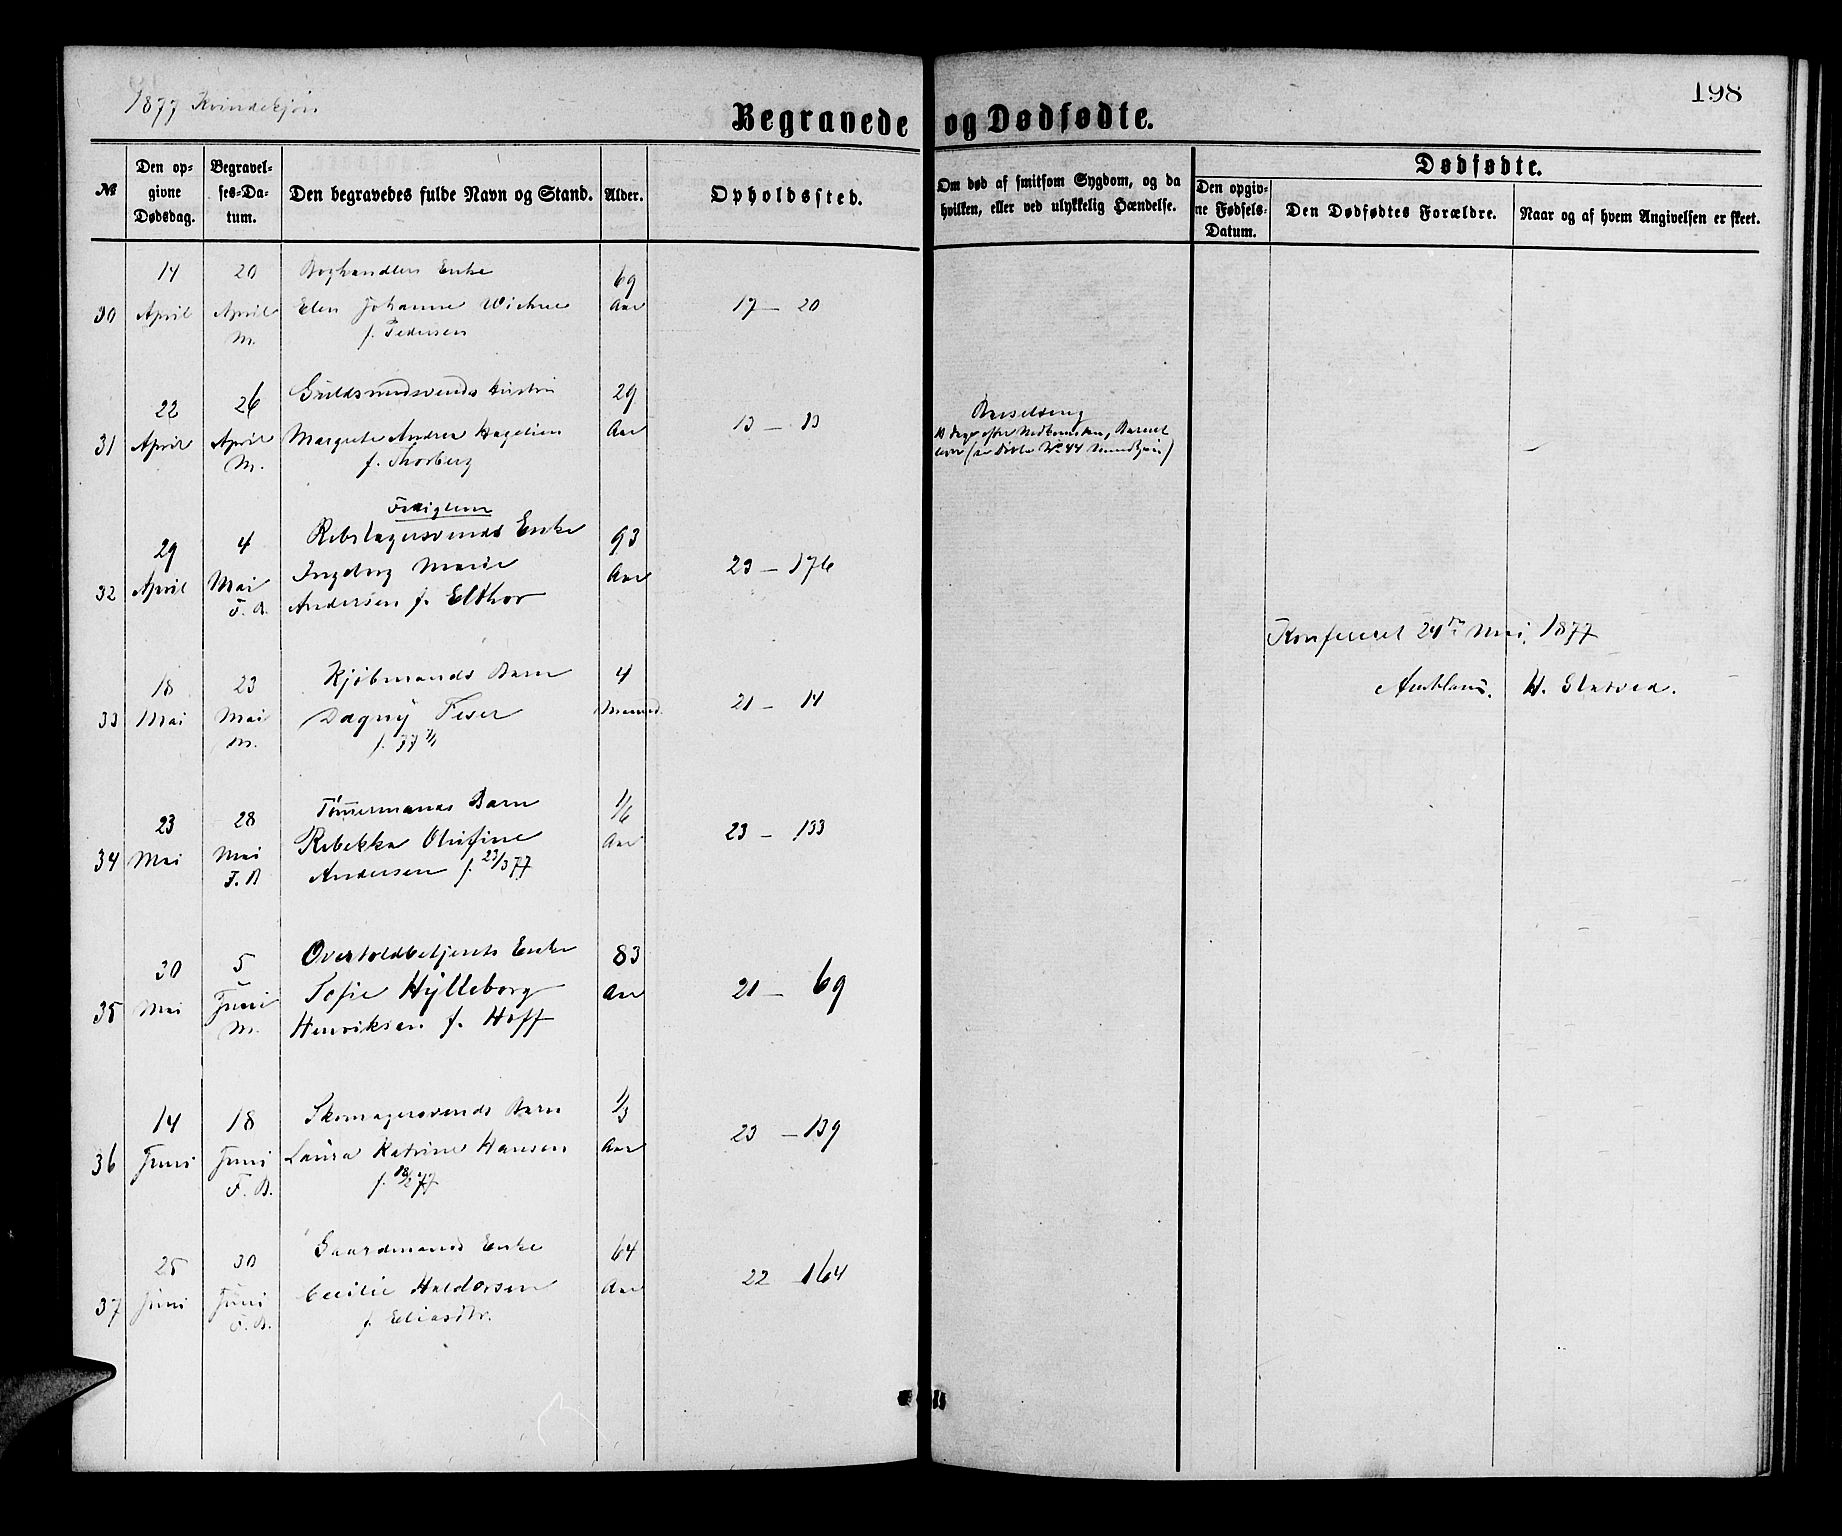 198
1877 Kvindekjøn
Begravede og Dødfødte.
№
Den opgivne Dødsdag.
Begravelses-Datum.
Den begravedes fulde Navn og Stand.
Alder.
Opholdssted.
Om død af smitsom Sygdom, og da hvilken, eller ved ulykkelig Hændelse.
Dødfødte.
Den opgivne Fødsels-Datum.
Den Dødfødtes Forældre.
Naar og af hvem Angivelsen er skeet.
14 20 Boghandlers Enke 69
30 April April Elen Johanne Aar 17 — 20
M. f. Pedersen
22 26 Guldsmedsvends Hustru 29
31 April April Margrete Andrea Hagelien Aar 13 — 13
M. f. Thorberg
Barselseng
10 Dage efter Nedkomsten, Barnet
lever (se Døbte No 44 Mandkjøn)
Fattiglem
29 4 Rebslagersvends Enke 93
32 April Mai Ingeborg Marie Aar 23 — 176
F. B. Andersen f. Elthor
Konfereret 24de Mai 1877
H.
18 23 Kjøbmands Barn 4
33 Mai Mai Dagny Maaned. 21 — 14
M. f. 77
23 28 Tømmermands Barn 1/6
34 Mai Mai Rebekka Olufine Aar 23 — 133
F. B Andersen f. 23/3 77
30 5 Overtoldbetjents Enke 83
35 Mai Juni Sofie Hylleborg Aar 21 — 69
M. Henriksen f. Hoff
14 18 Skomagersvends Barn 1/3
36 Juni Juni Laura Katrine Hansen Aar 23 — 139
F. B. f. 18/2 77
25 30 Gaardmands Enke 64
37 Juni Juni Cecilie Haldorsen Aar 22 — 164
F. B. f. Eliasdtr.